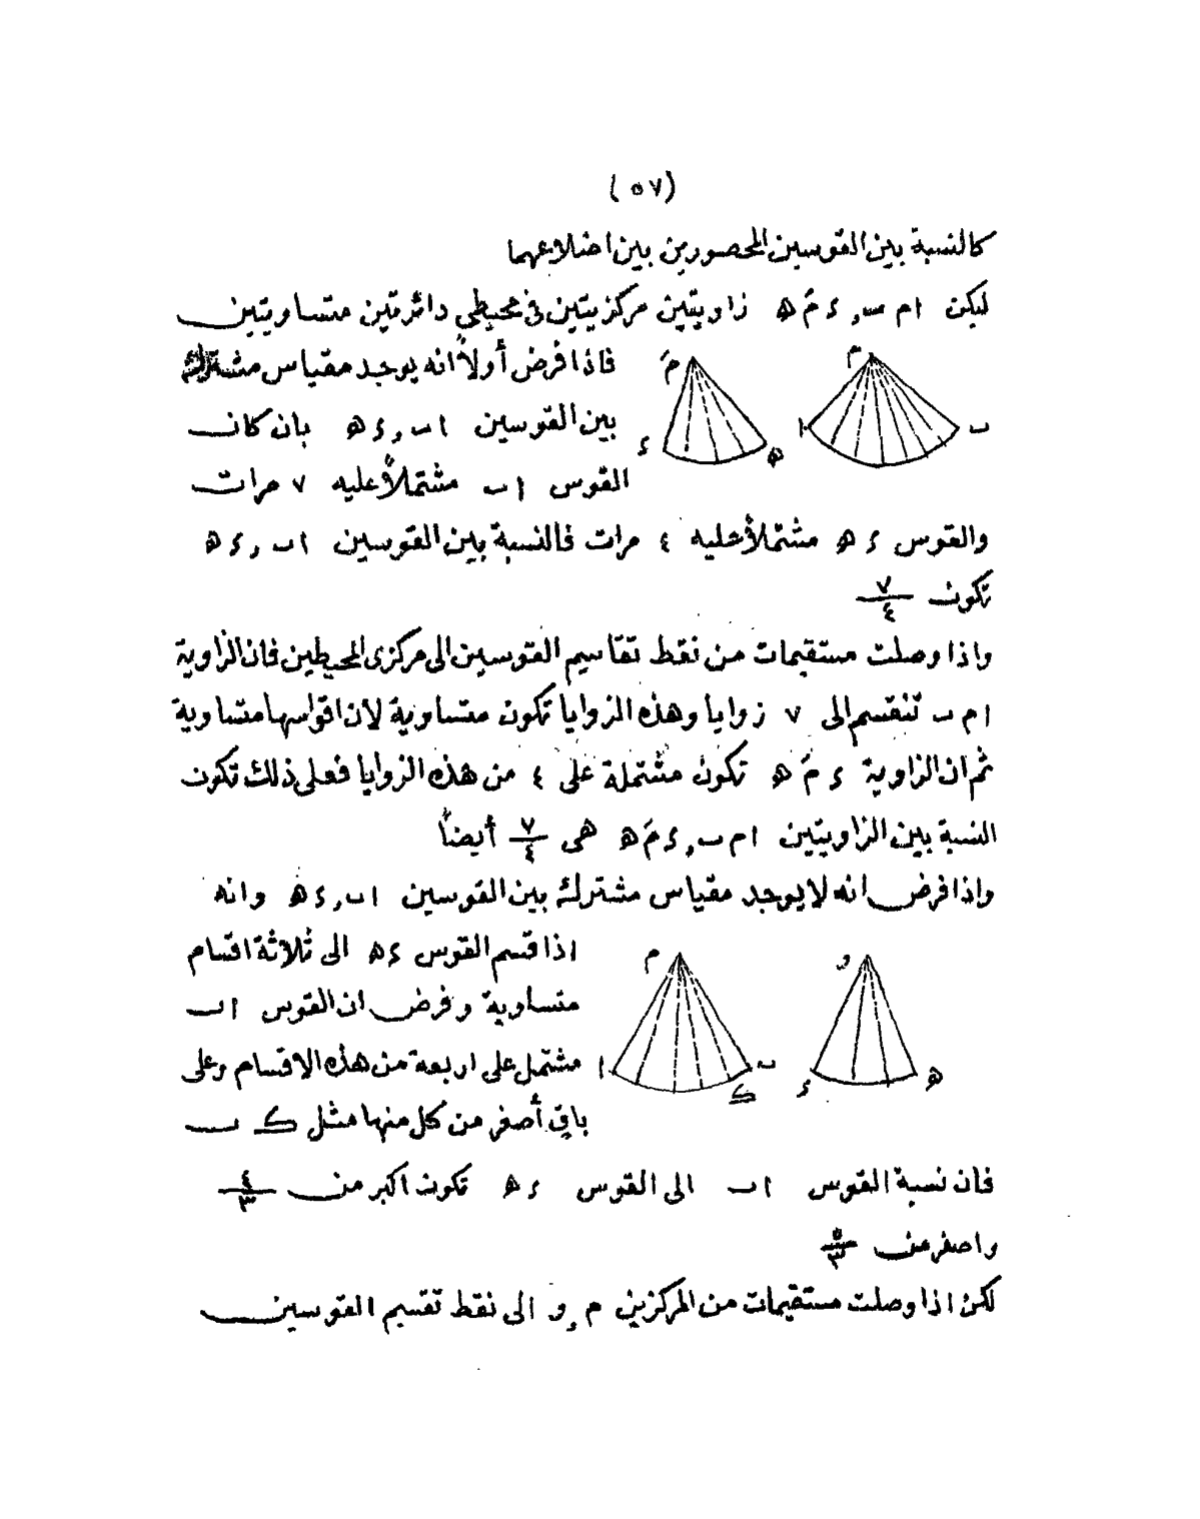 (٥٧)
كالنسبة بين القوسين المحصورين بين اضلاعهما
ليكن ا م ب , ء مَ ه زاويتين مركزيتين في محيطي دائرتين متساويتين
فاذا فرض أولاً انه يوجد مقياس مشترك
بين القوسين ا ب , ء ه بان كان
القوس ا ب مشتملاً عليه ٧ مرات
والقوس ء ه مشتملاً عليه ٤ مرات فالنسبة بين القوسين ا ب , ء ه
تكون ٧/٤
واذا وصلت مستقيمات من نقط تقاسيم القوسين الى مركزى المحيطين فان الزاوية
ا م ب تنقسم الى ٧ زوايا وهذه الزوايا تكون متساوية لان اقواسها متساوية
ثم ان الزاوية ء مَ ه تكون مشتملة على ٤ من هذه الزوايا فعلى ذلك تكون
النسبة بين الزاويتين ا م ب , ء مَ ه هى ٧/٤ أيضاً
واذا فرض انه لا يوجد مقياس مشترك بين القوسين ا ب , ء ه وانه
اذا قسم القوس ء ه الى ثلاثة اقسام
متساوية وفرض ان القوس ا ب
مشتمل على اربعة من هذه الاقسام وعلى
باق أصغر من كل منها مثل ك ب
فان نسبة القوس ا ب الى القوس ء ه تكون اكبر من ٤/٣
واصغر من ٥/٣
لكن اذا وصلت مستقيمات من المركزين م , و الى نقط تقسيم القوسين
م
ب
ا
مَ
ء
ه
م
ا
ب
ك
و
ء
ه